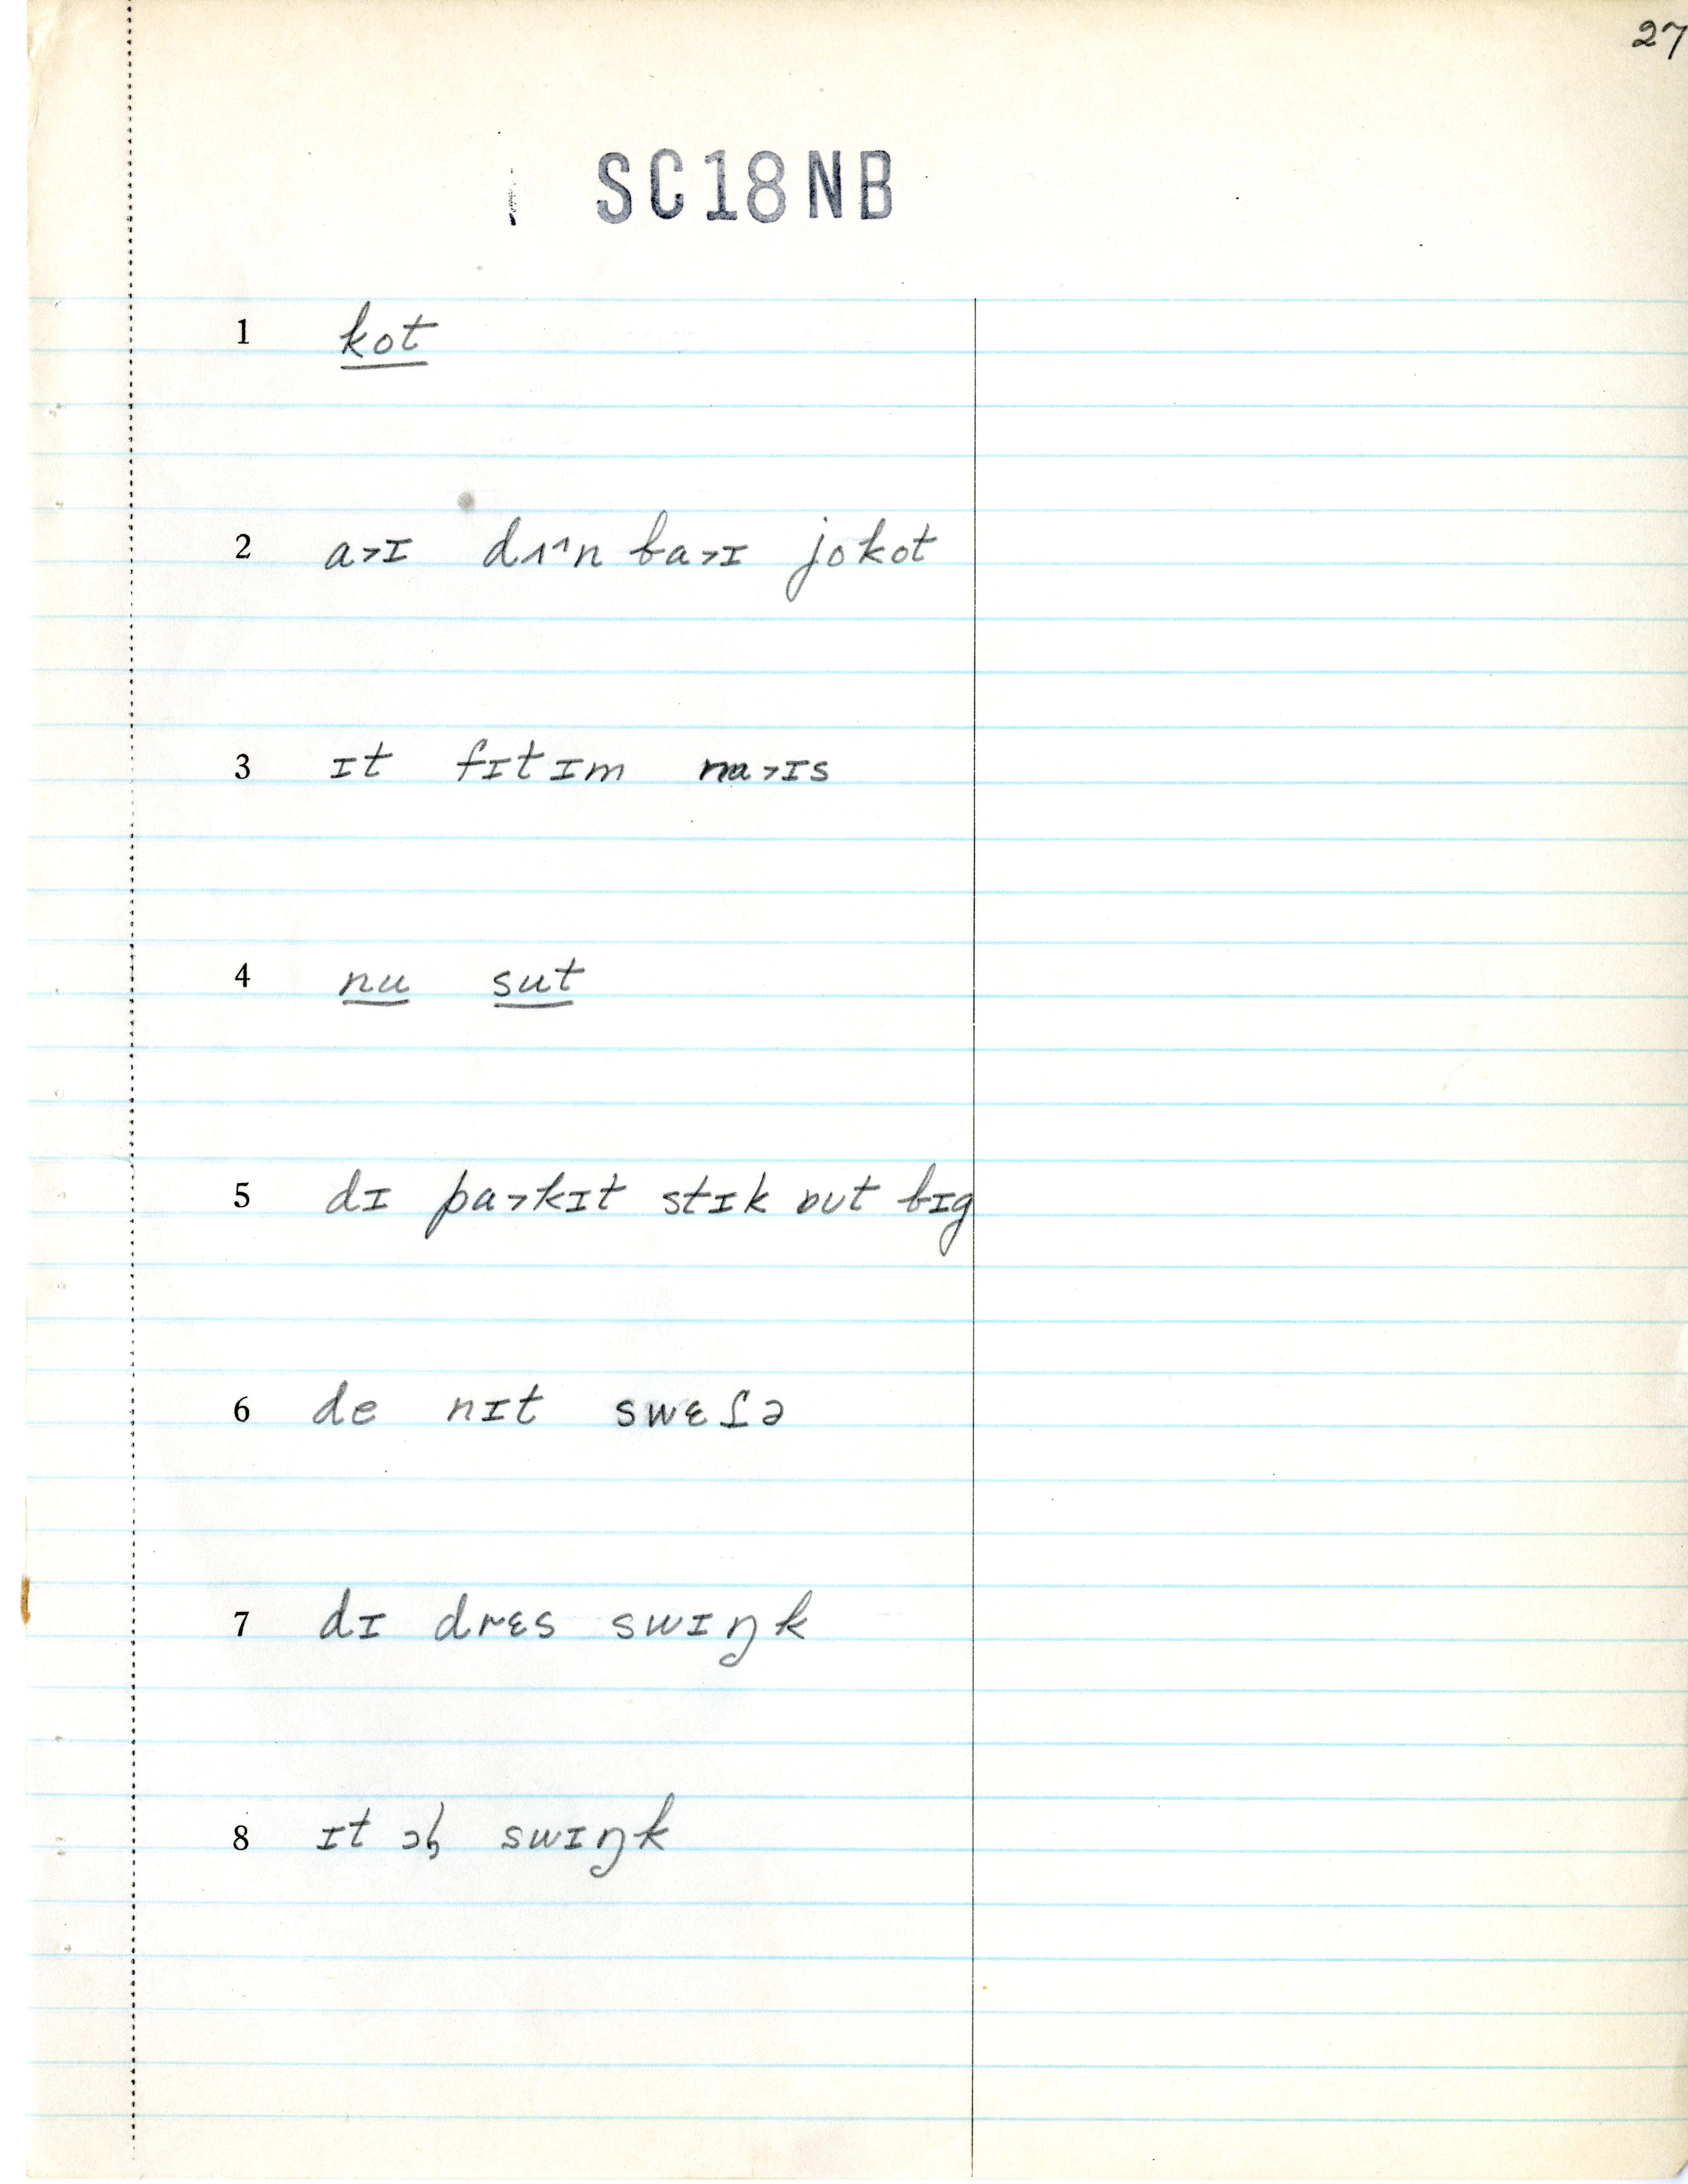 27
SC18NB
1 k̲o̲t̲
2 a˃ɪ dʌ^n ba˃ɪ jokot
3 ɪt fɪtɪm na˃ɪs
4 n̲u̲ s̲u̲t̲
5 dɪ pa˃kɪt stɪk ɒut bɪg
6 de nɪt swɛʃə
7 dɪ drɛs swɪŋk
8 ɪt swɪŋk